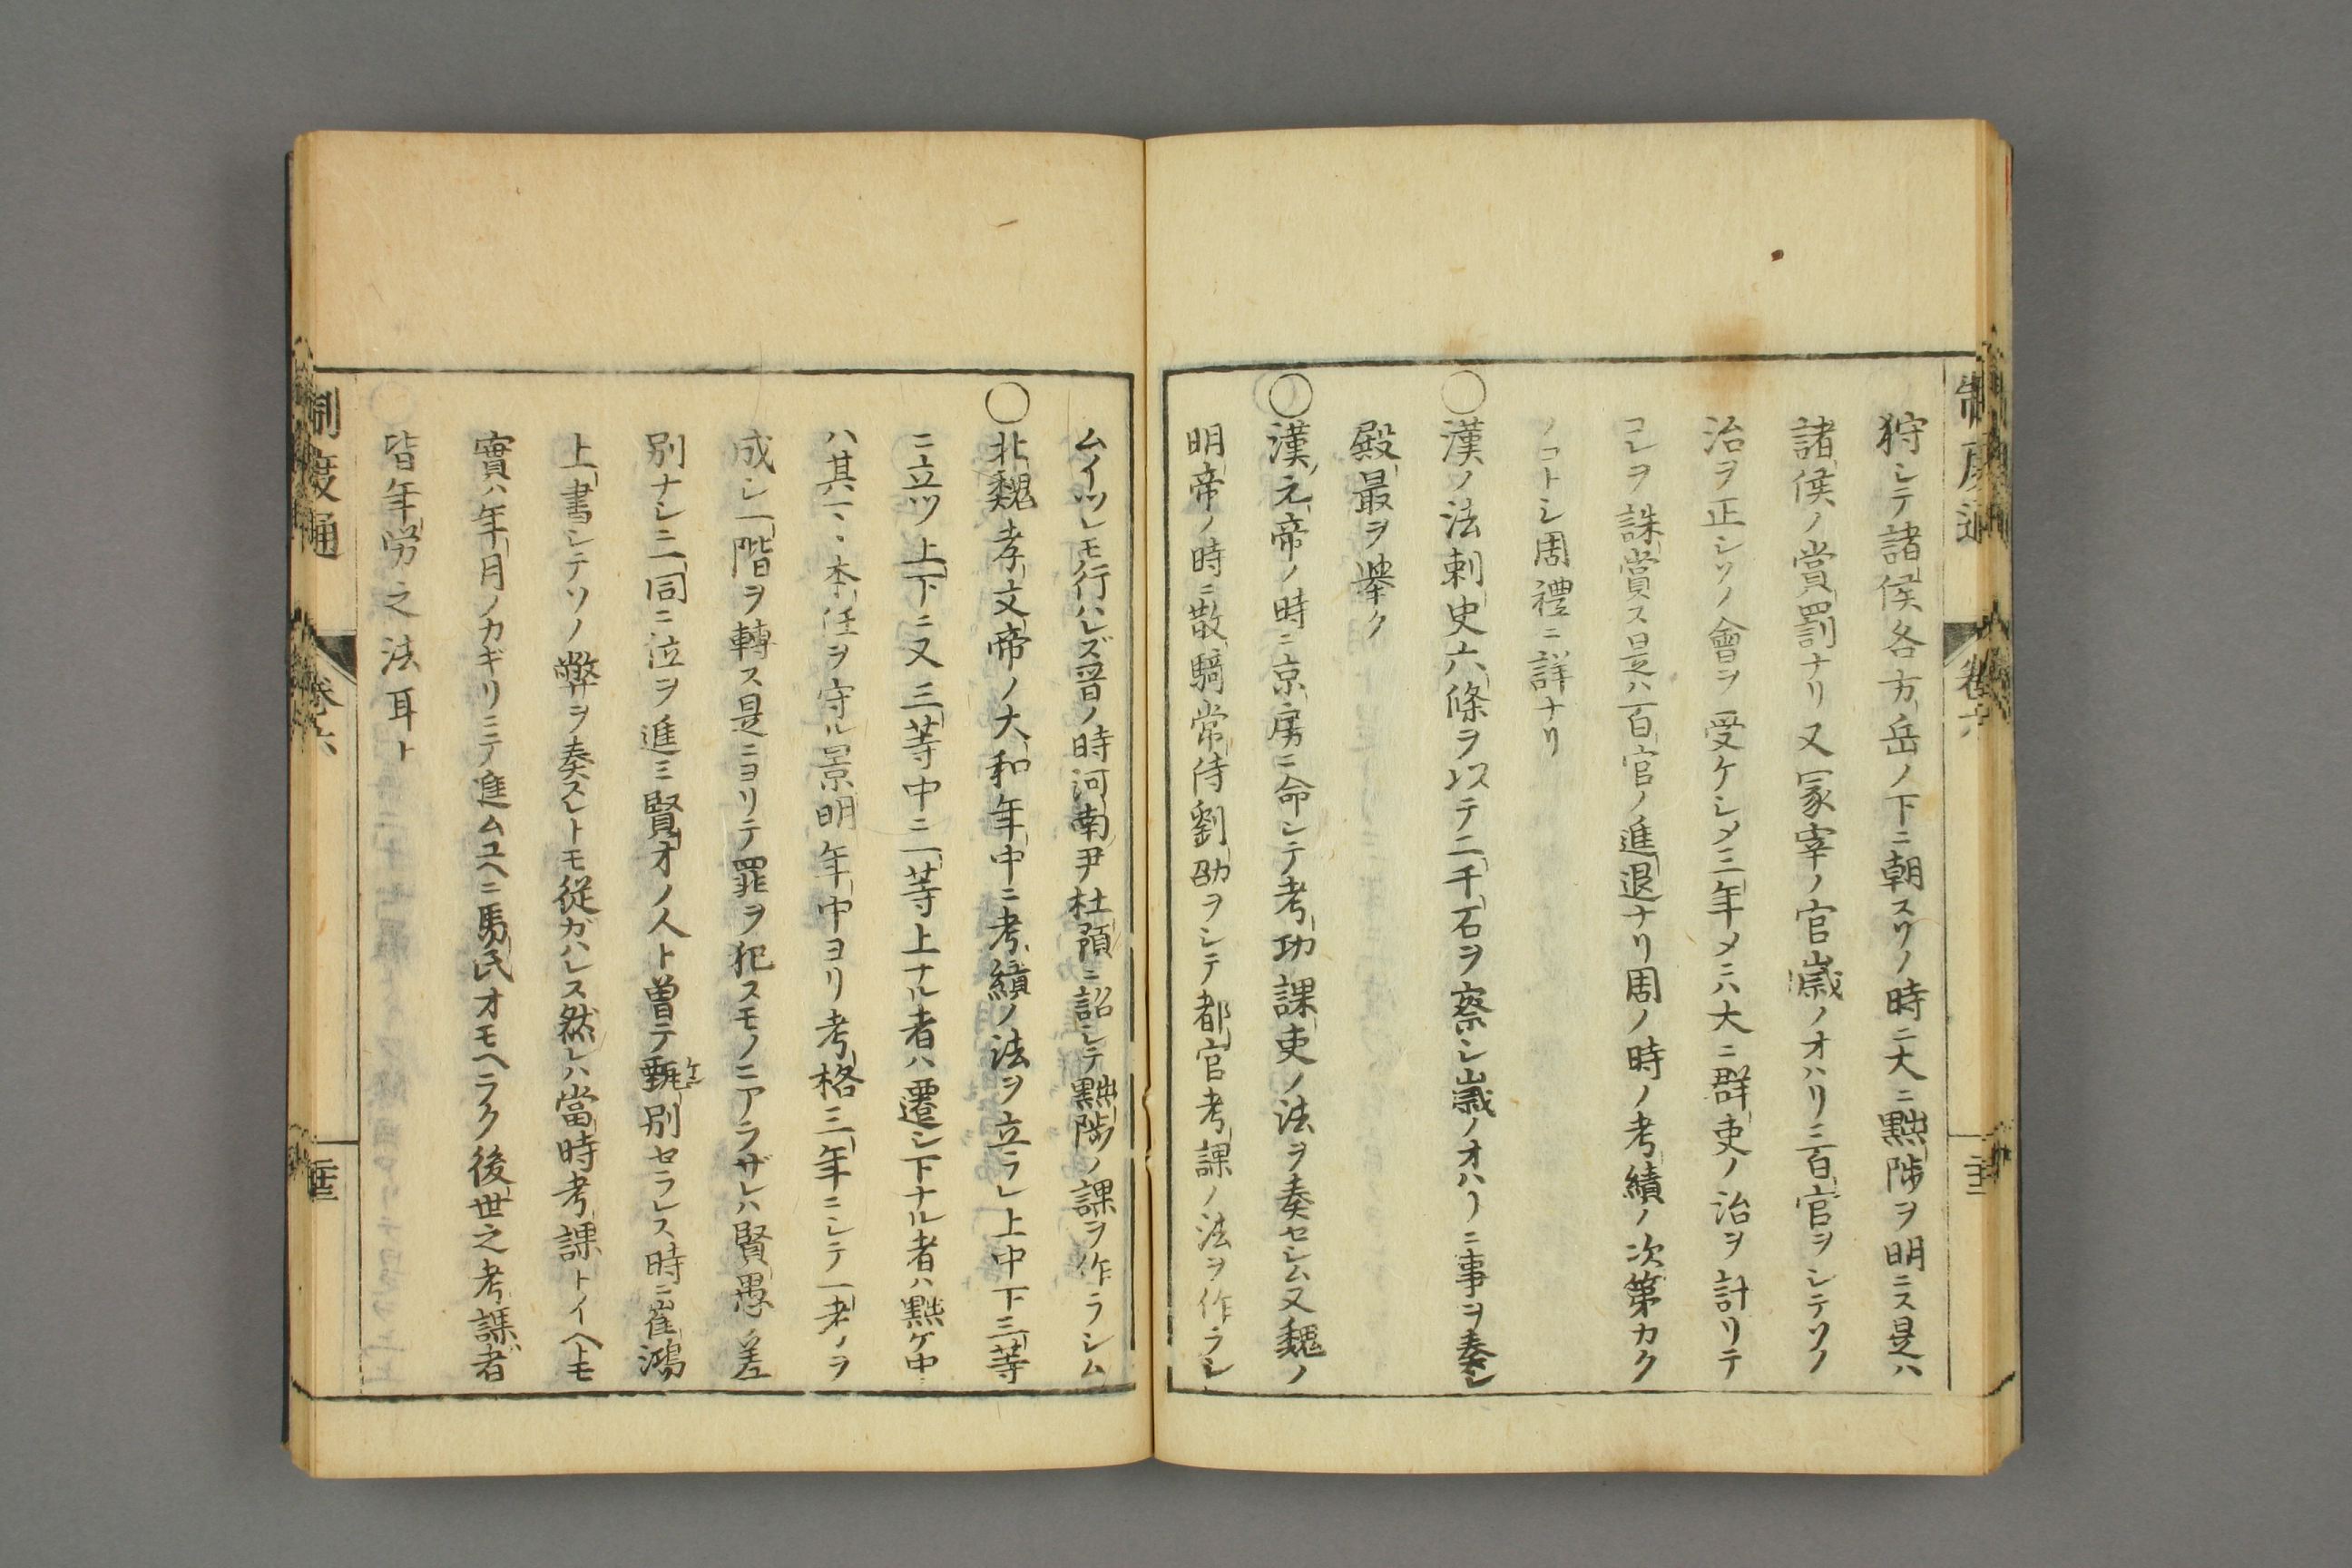 狩シテ諸侯各方岳ノ下ニ朝スソノ時ニ大ニ黜陟ヲ明ニス是ハ
諸侯ノ賞罰ナリ又冢宰ノ官歳ノオハリニ百官ヲシテソノ
治ヲ正シソノ會ヲ受ケシメ三年メニハ大ニ群吏ノ治ヲ計リテ
コレヲ誅賞ス是ハ百官ノ進退ナリ周ノ時ノ考績ノ次第カク
ノコトシ周禮ニ詳ナリ
○漢ノ法刺史六條ヲ以テ二千石ヲ察シ歳ノオハリニ事ヲ奏シ
殿最ヲ挙ク
○漢ノ元帝ノ時ニ京房ニ命シテ考功課吏ノ法ヲ奏セシム又魏ノ
明帝ノ時ニ散騎常侍劉劭ヲシテ都官考課ノ法ヲ作ラシ
ムイツレモ行ハレズ晋ノ時河南尹杜預ニ詔シテ黜陟ノ課ヲ作ラシム
○北魏孝文帝ノ大和年中ニ考績ノ法ヲ立ラレ上中下三等
ニ立ツ上下ニ又三等中ニ一等上ナル者ハ遷シ下ナル者ハ黜ケ中
ハ其一〻本任ヲ守ル景明年中ヨリ考格三年ニシテ一考ノヲ
成シ一階ヲ轉ス是ニヨリテ罪ヲ犯スモノニアラザレハ賢愚ノ差
別ナシニ同ニ泣ヲ進ミ賢才ノ人ト曽テ甄別セラレス時ニ崔鴻
上書シテソノ弊ヲ奏スレトモ從ガハレス然レハ當時考課トイヘトモ
實ハ年月ノカギリミテ進ムユヘニ馬氏オモヘラク後世之考課者
皆年労之法耳ト
制度通
卷六
制度通
卷六